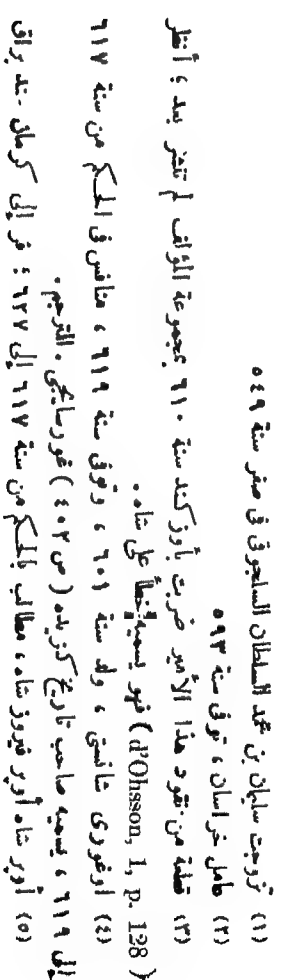 (١) تزوجت سليمان بن محمد السلطان السلجوقى فى صفر سنة ٥٤٩
(٢) عامل خراسان ، توفى سنة ٥٩٣
(٣) قطعة من نقود هذا الأمير ضربت بأوزكند سنة ٦١٠ بمجموعة المؤلف لم تنشر بعد ؛ أنظر
(d'Ohsson, 1, p. 128) فهو يسميه خطأ على شاه .
(٤) أوغورى شانستى ، ولد سنة ٦٠١ ، وتوفى سنة ٦١٩ ، منافس فى الحكم من سنة ٦١٧
إلى ٦١٩ ، يسميه صاحب تاريخ كزيده (ص ٤٠٢) غورسايجى . المترجم .
(٥) أوبر شاه أوبر فيروز شاه ، مطالب بالحكم من سنة ٦١٧ إلى ٦٢٧ ؛ فر إلى كرمان عند براق